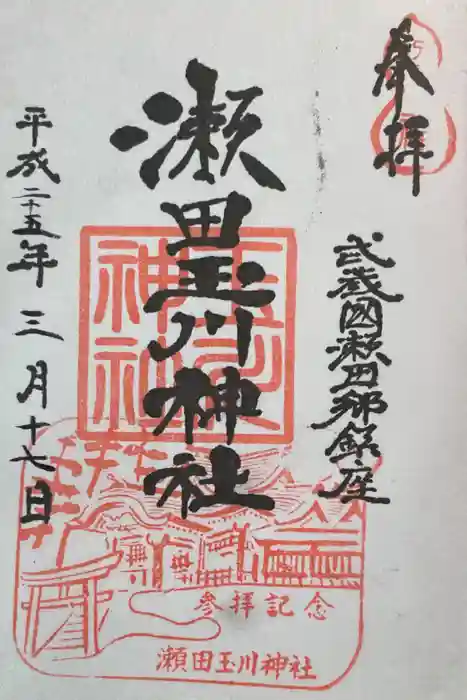 奉拝
武蔵國瀬田郷鎮座
瀬田玉川神社
平成二十五年三月十七日
参拝記念
瀬田玉川神社